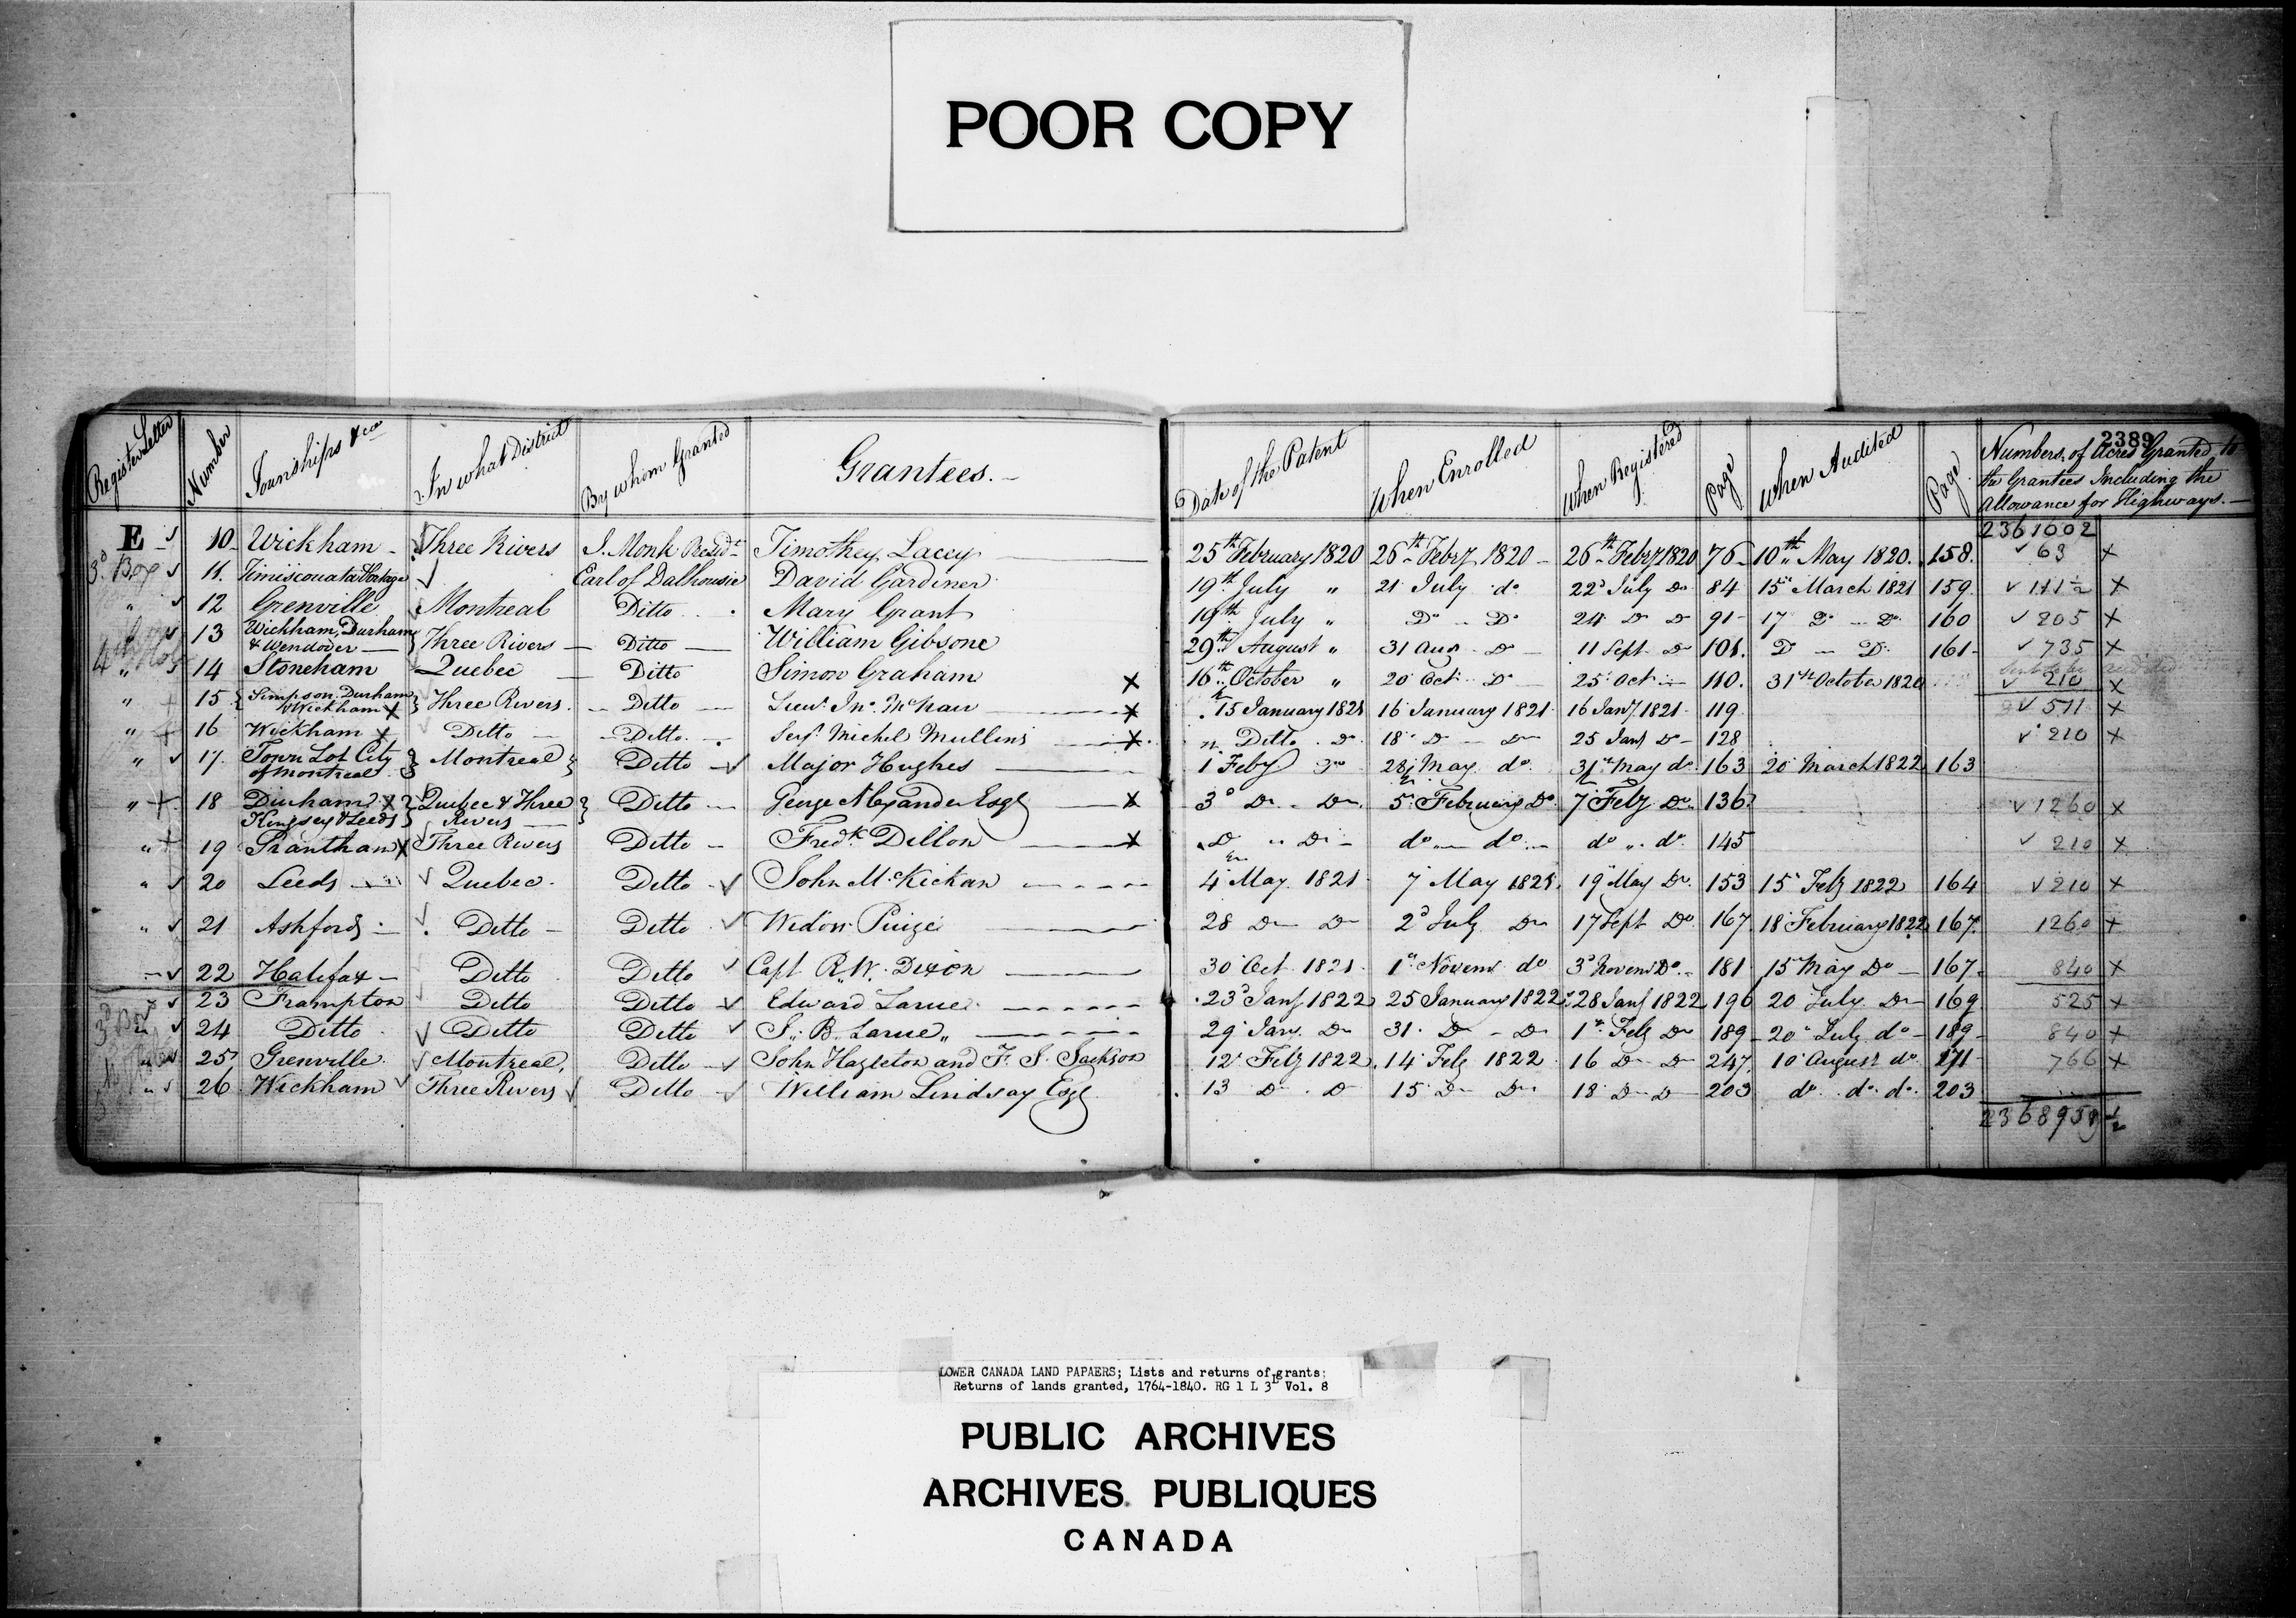 POOR COPY
2389
Register Letter Number Townships &ca In what District By whom Granted Grantees. Date of the Patent When Enrolled When Registered Page When Audited Page Numbers of Acres Granted to
the Grantees Including the
Allowance for Highways.
2361002
E 10 Wickham Three Rivers J. Monk Presidt Timothy Lacey 25th February 1820 26th Feby 1820 26th Feby 1820 76 10th May 1820. 158. 63 x
3d Box 11. Timiscouata Portage Earl of Dalhousie David Gardiner 19th July " 21 July do 22d July Do 84 15 March 1821 159. 111½ x
" 12 Grenville Montreal Ditto Mary Grant 19th July " Do Do 24 Do Do 91 17 Do Do 160 205 x
13 Wickham, Durham
& Wendover } Three Rivers Ditto William Gibsone 29th August " 31 Aug Do 11 Sept Do 101. Do Do 161 735 x
" 14 Stoneham Quebec Ditto Simon Graham x 16th October " 20 Oct Do 25 Oct 110. 31st October 1820 210 x
" 15 { Simpson Durham
Wickham x } Three Rivers Ditto Lieut. Jno. McNair x 15 January 1821 16 January 1821 16 Jany 1821 119 511 x
" 16 Wickham x Ditto Ditto Serj. Michel Mullins x Ditto Do 18 Do Do 25 Jany Do 128 210 x
" 17. Town Lot City
of Montreal } Montreal } Ditto Major Hughes 1 Feby Do 28 May do 31st May do 163 20 March 1822 163
" 18 Durham x
Kingsey & Leeds } Quebec & Three
Rivers } Ditto George Alexander Esqr x 3d Do Do 5 February Do 7 Feby Do 136 1260 x
" 19 Grantham x Three Rivers Ditto Fredk Dillon x Do " Do do do do " do 145 210 x
" 20 Leeds Quebec Ditto John McKickan 4 May 1821 7 May 1821. 19 May Do 153 15 Feby 1822 164 210 x
" 21 Ashford Ditto Ditto Widow 28 Do Do 2d July Do 17 Sept Do 167 18 February 1822 167. 1260 x
22 Halifax Ditto Ditto Capt R. W. Dixon 30 Oct 1821 1st Novemr do 3d Novemr Do 181 15 May Do 167. 840 x
23 Frampton Ditto Ditto Edward Larue 23d Jany 1822 25 January 1822 28 Jany 1822 196 20 July Do 169 525 x
24 Ditto Ditto Ditto J. B. Larue " 29 Jany. Do 31. Do Do 1st Feby Do 189 20 July do 189 840 x
25 Grenville Montreal, Ditto John Hazleton and F. S. Jackson 12 Feby 1822. 14 Feby 1822 16 Do Do 247. 10 August do 171 766 x
26 Wickham Three Rivers Ditto William Lindsay Esqr 13 Do Do 15 Do Do 18 Do Do 203 do do do 203
2368958½
LOWER CANADA LAND PAPAERS; Lists and returns of grants;
Returns of lands granted, 1764-1840. RG 1 L 3L Vol. 8
PUBLIC ARCHIVES
ARCHIVES PUBLIQUES
CANADA